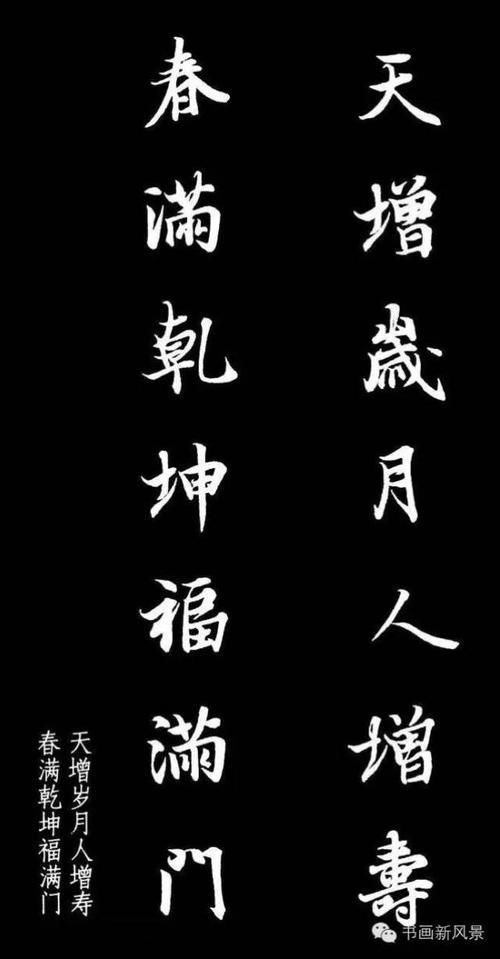 天增歲月人增壽
春滿乾坤福滿門
天增岁月人增寿
春满乾坤福满门
书画新风景